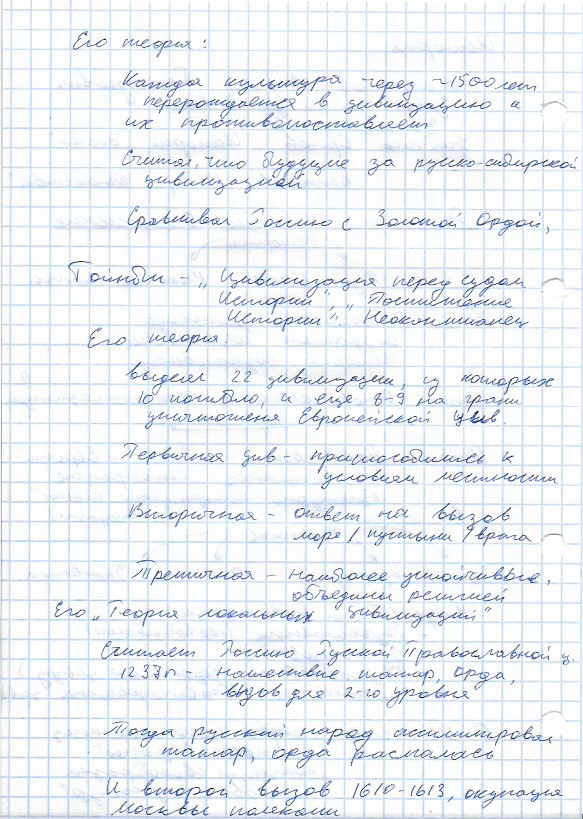 Его теория:
Кажда культура через ~1500 лет
перерождается в цивилизацию и
их противопоставляет
Считал, что будущие за русско-сибирской
цивилизацией
Сравнивал Россию с Золотой Ордой,
Тойнби - „Цивилизация перед судом
Истории", „Постижение
Истории". Неокантианец
Его теория:
выделял 22 цивилизации, из которых
10 погибло, и еще 8-9 на грани
уничтоженя Европейской цив.
Первичная цив - приспособились к
условиям местности
Вторичная - ответ на вызов
море / пустыни / врага
Третичная - наиболее устойчивые,
объедины религией
Его „Теория локальных цивилизаций"
Считает Россию Русской Православной ц.
1237г - нашествие татар, орда,
вызов для 2-го уровня
Тогда русский народ ассимилировал
татар, орда распалась
И второй вызов 1610-1613, окупация
Москвы поляками